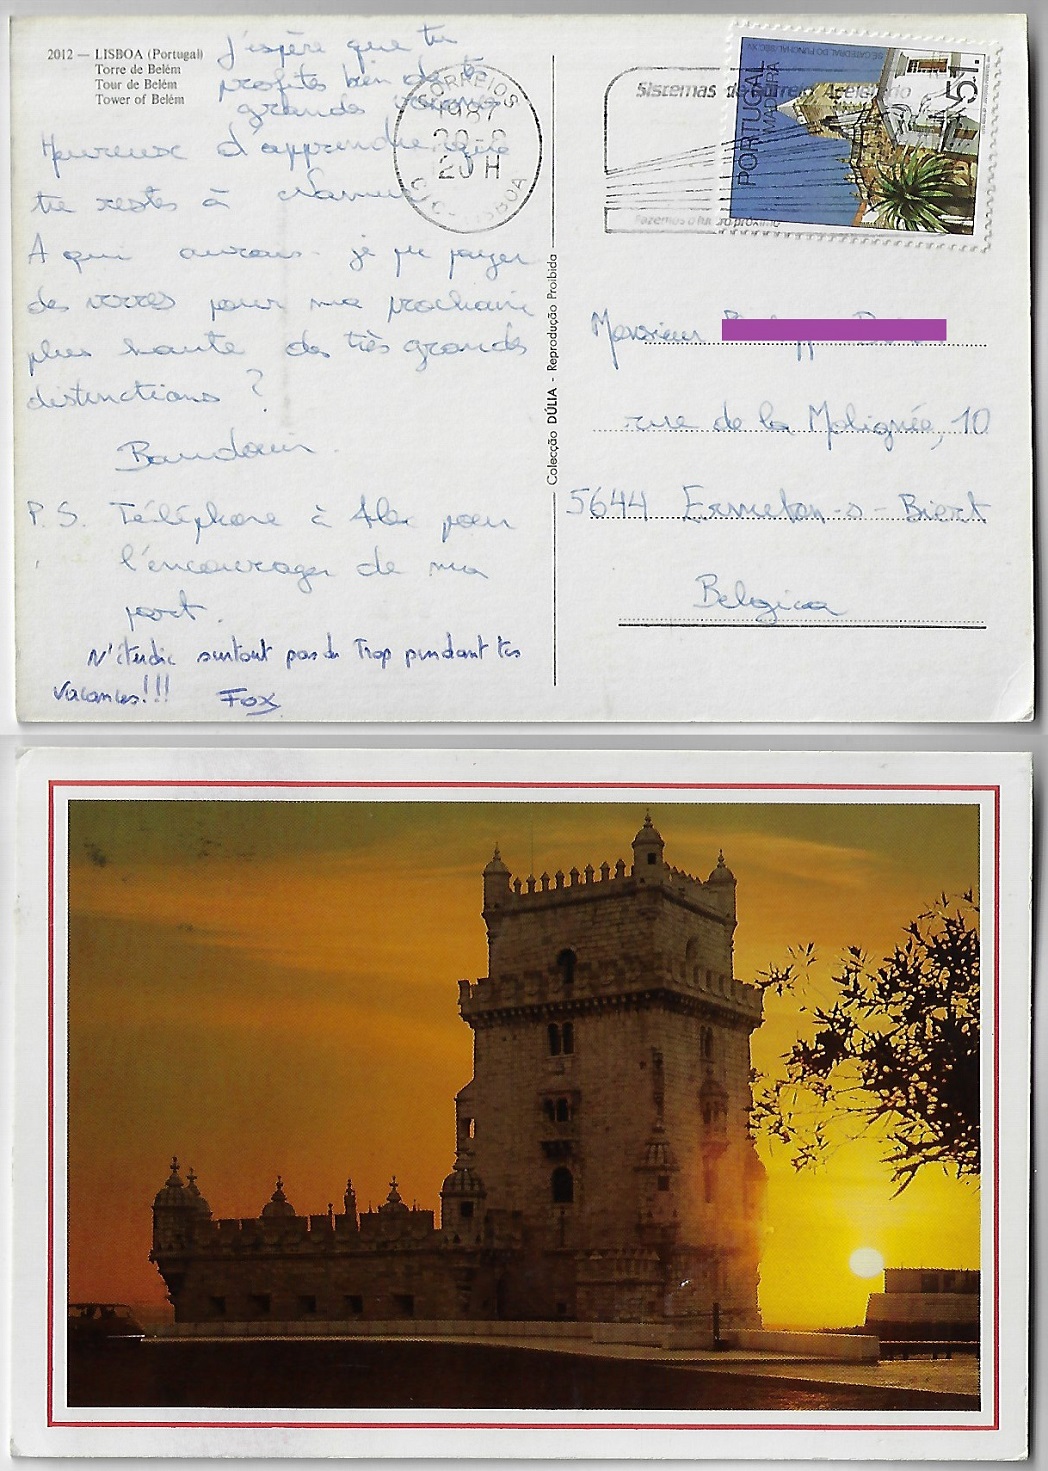 2012 — LISBOA (Portugal)
Torre de Belém
Tour de Belém
Tower of Belém
J'espère que tu
profites bien de te
grandes vacances
Heureux d'apprendre que
tu restes à Namur
A qui aurais-je pu payer
des verres pour ma prochaine
plus haute des très grandes
distinctions ?
Baudouin.
P.S. Téléphone à Alex pour
l'encourager de ma
part.
N'étudie surtout pas du Trop pendant tes
vacances!!! Fox
Colecção DÚLIA - Reprodução Proibida
CORREIOS
1987
20 H
LISBOA
Sistemas de Correio Acelerado
Fazemos o futuro próximo
PORTUGAL
MADEIRA
51.
SÉ CATEDRAL DO FUNCHAL/SÉC. XV
Monsieur
rue de la Molignée, 10
5644 Ermeton-s-Biert
Belgica